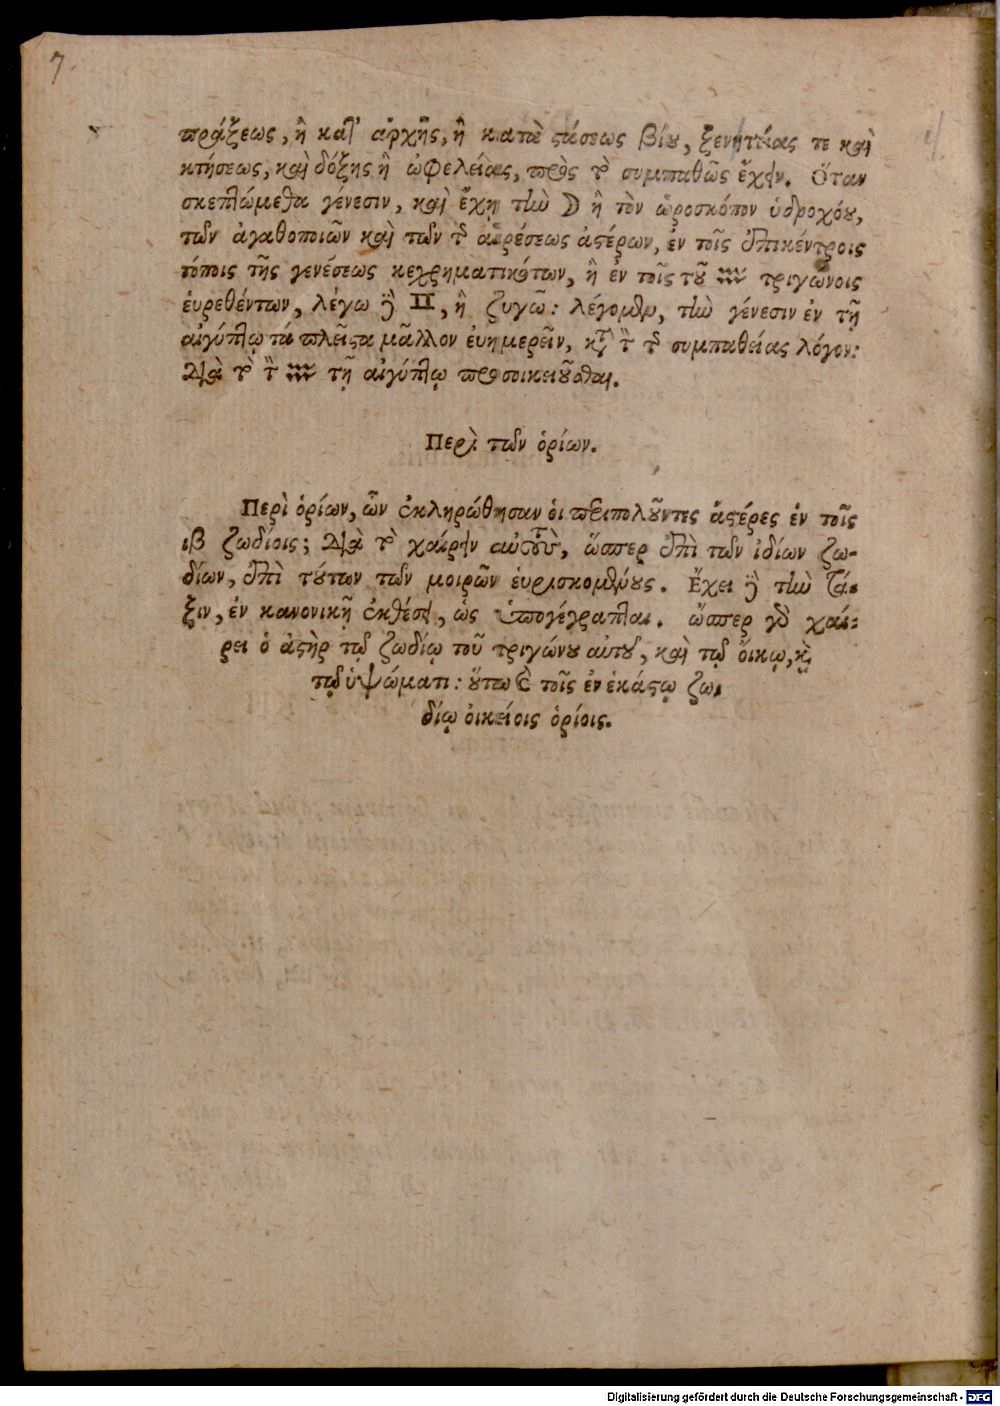 7.
πράξεως, ἢ κατ' ἀρχῆς, ἢ καταστάσεως βίου, ξενητείας τε καὶ
κτήσεως, καὶ δόξης ἢ ὠφελείας, πρὸς τὸ συμπαθῶς ἔχειν. Ὅταν
σκεπτώμεθα γένεσιν, καὶ ἔχῃ τὴν ☽ ἢ τὸν ὡροσκόπον ὑδροχόου,
τῶν ἀγαθοποιῶν καὶ τῶν τῆς αἱρέσεως ἀστέρων, ἐν τοῖς ἐπικέντροις
τόποις τῆς γενέσεως κεχρηματικότων, ἢ ἐν τοῖς τοῦ ♒ τριγώνοις
εὑρεθέντων, λέγω δὲ ♊, ἢ ζυγῶ: λέγομεν, τὴν γένεσιν ἐν τῇ
αἰγύπτῳ τὰ πλεῖστα μᾶλλον εὐημερεῖν, κατὰ τὸν τῆς συμπαθείας λόγον:
διὰ τὸ τὸν ♒ τῇ αἰγύπτῳ προσοικειοῦσθαι.
Περὶ τῶν ὁρίων.
Περὶ ὁρίων, ὧν ἐκληρώθησαν οἱ περιπολοῦντες ἀστέρες ἐν τοῖς
ιβ ζωδίοις; διὰ τὸ χαίρειν αὐτοὺς, ὥσπερ ἐπὶ τῶν ἰδίων ζω-
δίων, ἐπὶ τούτων τῶν μοιρῶν εὑρισκομένους. Ἔχει δὲ τὴν τά-
ξιν, ἐν κανονικῇ ἐκθέσει, ὡς ὑπογέγραπται. ὥσπερ γὰρ χαί-
ρει ὁ ἀστὴρ τῷ ζωδίῳ τοῦ τριγώνου αὐτοῦ, καὶ τῷ οἴκῳ, καὶ
τῷ ὑψώματι: οὕτω καὶ τοῖς ἐν ἑκάστῳ ζω-
δίῳ οἰκείοις ὁρίοις.
Digitalisierung gefördert durch die Deutsche Forschungsgemeinschaft - DFG